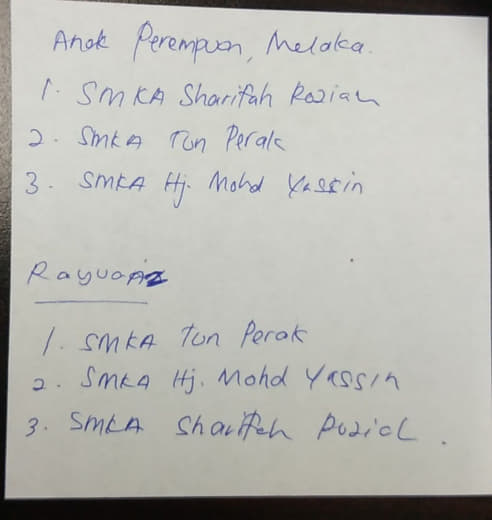 Anak Perempuan, Melaka.
1. SMKA Sharifah Roziah
2. SMKA Tun Perak
3. SMKA Hj. Mohd Yassin
Rayuan
1. SMKA Tun Perak
2. SMKA Hj. Mohd Yassin
3. SMKA Sharifah